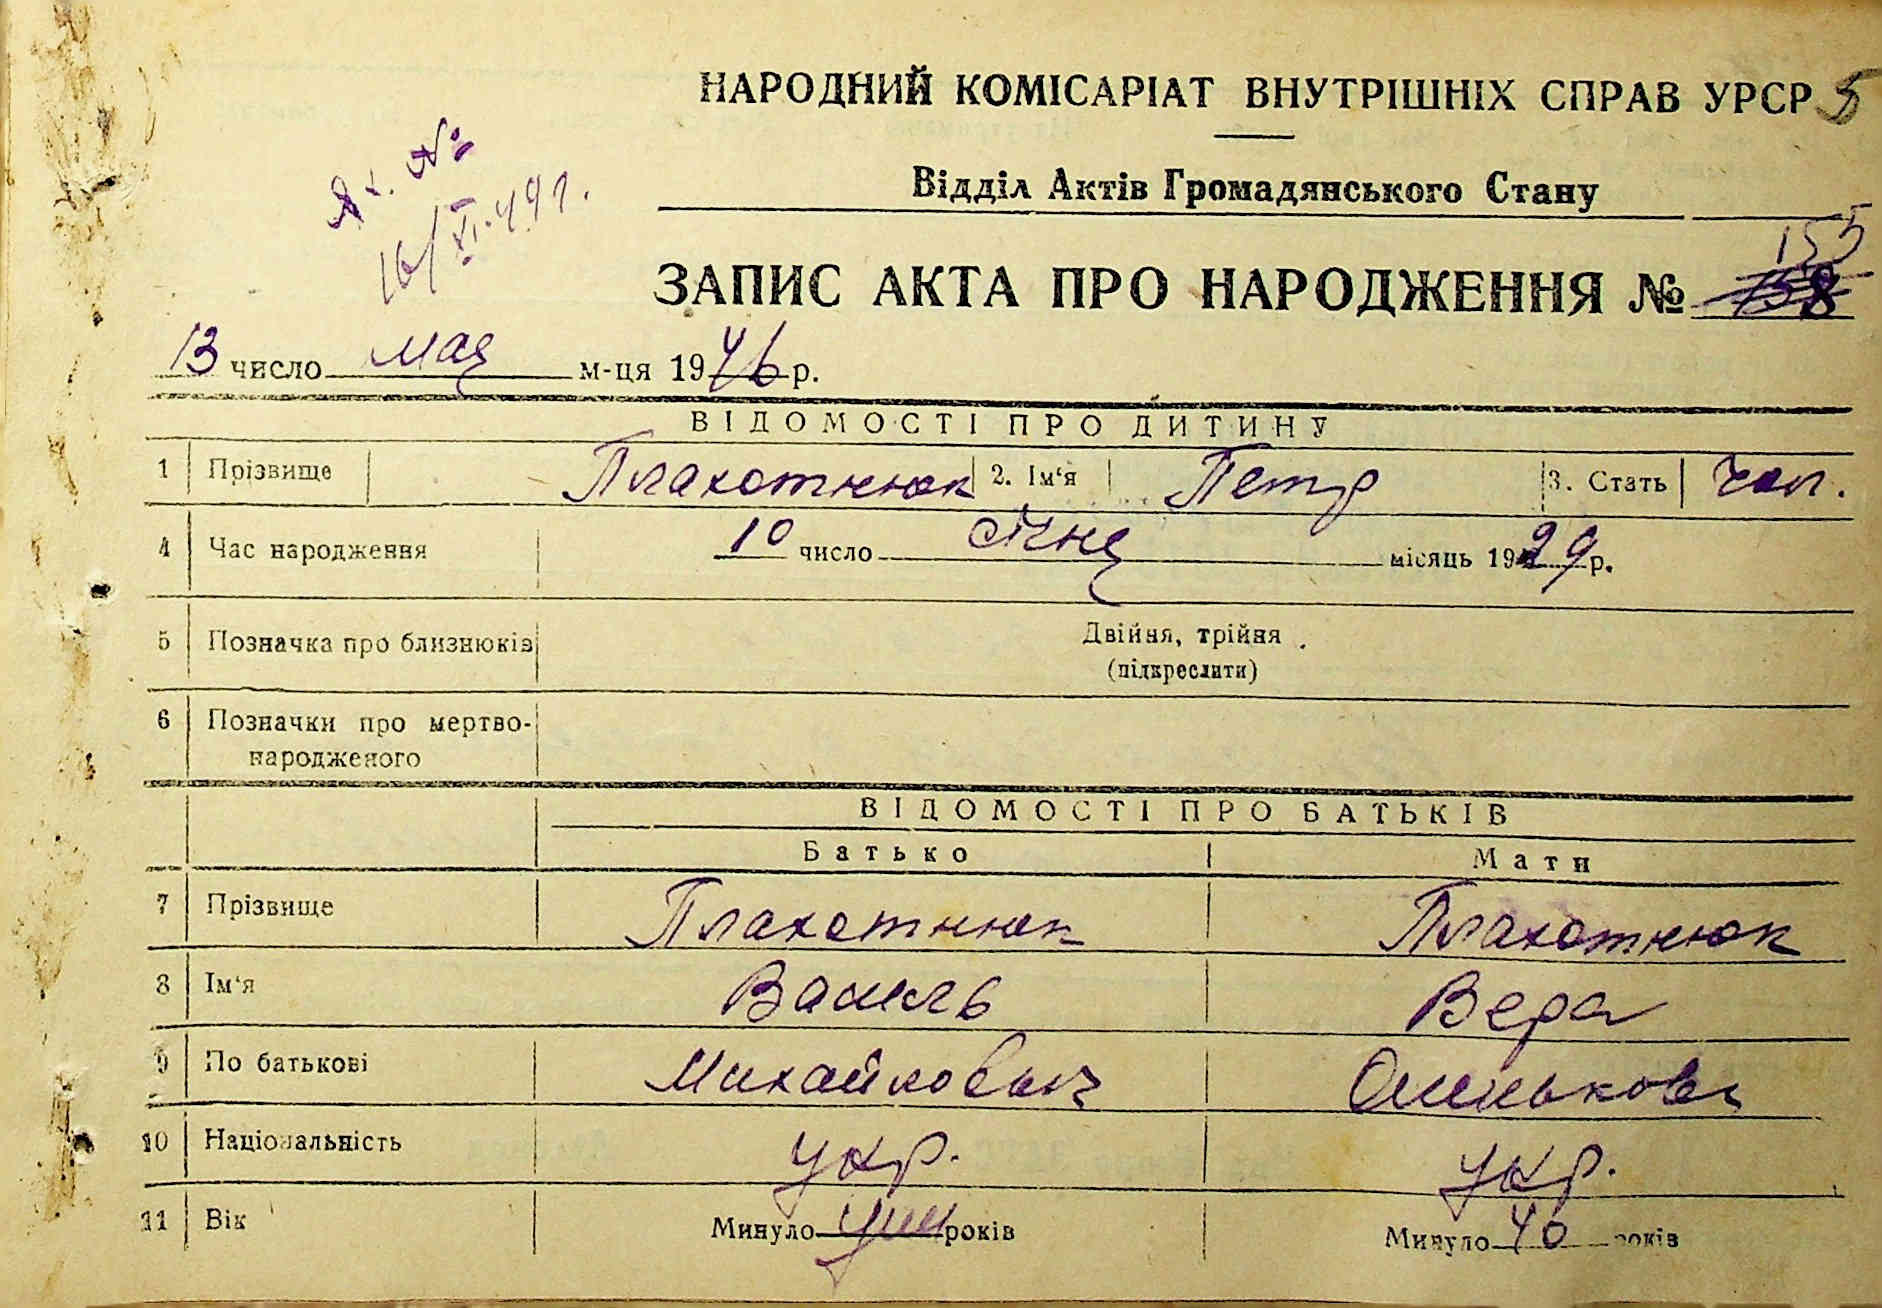 НАРОДНИЙ КОМІСАРІАТ ВНУТРІШНІХ СПРАВ УРСР 5
Відділ Актів Громадянського Стану
№
16/XI-49 г.
155
ЗАПИС АКТА ПРО НАРОДЖЕННЯ № 158
13 число мая м-ця 1946 р.
ВІДОМОСТІ ПРО ДИТИНУ
1 Прізвище Плахотнюк 2. Ім'я Петр 3. Стать чол.
4 Час народження 10 число січня місяць 1929 р.
5 Позначка про близнюків Двійня, трійня
(підкреслити)
6 Позначки про мертво-
народженого
ВІДОМОСТІ ПРО БАТЬКІВ
Батько Мати
7 Прізвище Плахотнюк Плахотнюк
8 Ім'я Василь Вера
9 По батькові Михайлович
10 Національність укр. укр.
11 Вік Минуло років Минуло 40 років